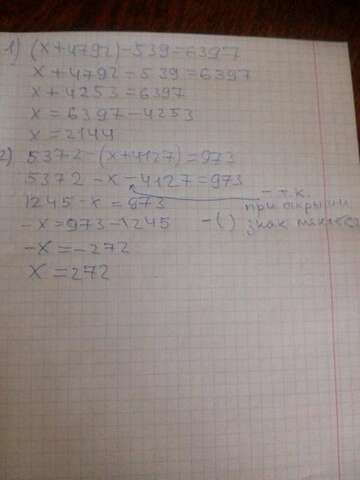 1) (x+4792)-539=6397
x+4792-539=6397
x+4253=6397
x=6397-4253
x=2144
2) 5372-(x+4127)=973
5372-x-4127=973
- т.к.
при открытии
-( ) знак меняется
1245-x=973
-x=973-1245
-x=-272
x=272